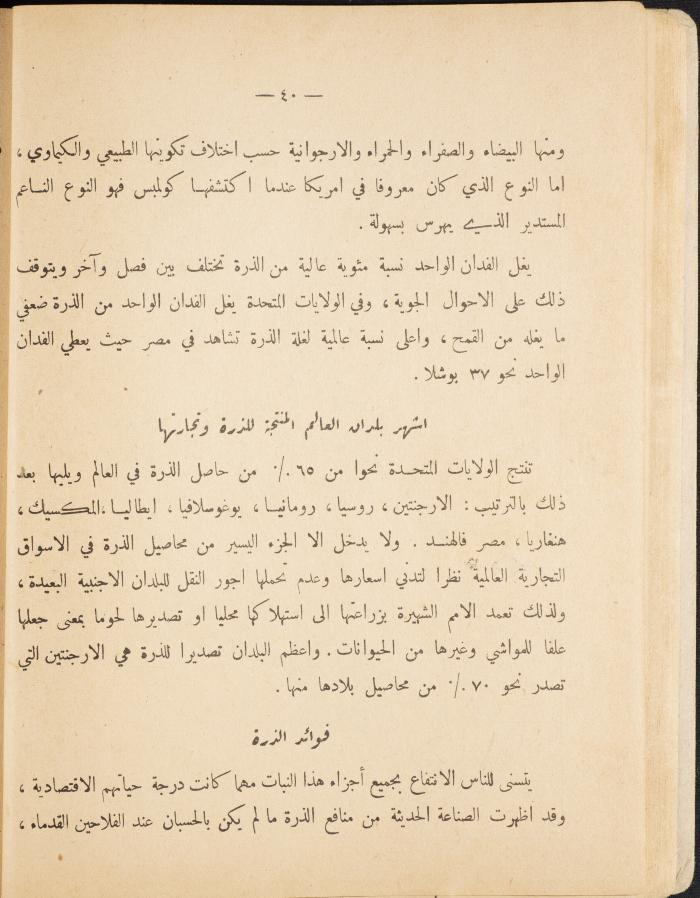 — ٤٠ —
ومنها البيضاء والصفراء والحمراء والارجوانية حسب اختلاف تكوينها الطبيعي والكيماوي ،
اما النوع الذي كان معروفا في امريكا عندما اكتشفها كولمبس فهو النوع الناعم
المستدير الذي يهرس بسهولة .
يغل الفدان الواحد نسبة مئوية عالية من الذرة تختلف بين فصل وآخر ويتوقف
ذلك على الاحوال الجوية ، وفي الولايات المتحدة يغل الفدان الواحد من الذرة ضعفي
ما يغله من القمح ، واعلى نسبة عالمية لغلة الذرة تشاهد في مصر حيث يعطي الفدان
الواحد نحو ٣٧ بوشلا .
اشهر بلدان العالم المنتجة للذرة وتجارتها
تنتج الولايات المتحدة نحوا من ٦٥ ./· من حاصل الذرة في العالم ويليها بعد
ذلك بالترتيب : الارجنتين ، روسيا ، رومانيا ، يوغوسلافيا ، ايطاليا ،المكسيك ،
هنغاريا ، مصر فالهند . ولا يدخل الا الجزء اليسير من محاصيل الذرة في الاسواق
التجارية العالمية نظرا لتدني اسعارها وعدم تحملها اجور النقل للبلدان الاجنبية البعيدة ،
ولذلك تعمد الامم الشهيرة بزراعتها الى استهلاكها محليا او تصديرها لحوما بمعنى جعلها
علفا للمواشي وغيرها من الحيوانات . واعظم البلدان تصديرا للذرة هي الارجنتين التي
تصدر نحو ٧٠ ./· من محاصيل بلادها منها .
فوائد الذرة
يتسنى للناس الانتفاع بجميع أجزاء هذا النبات مهما كانت درجة حياتهم الاقتصادية ،
وقد اظهرت الصناعة الحديثة من منافع الذرة ما لم يكن بالحسبان عند الفلاحين القدماء ،